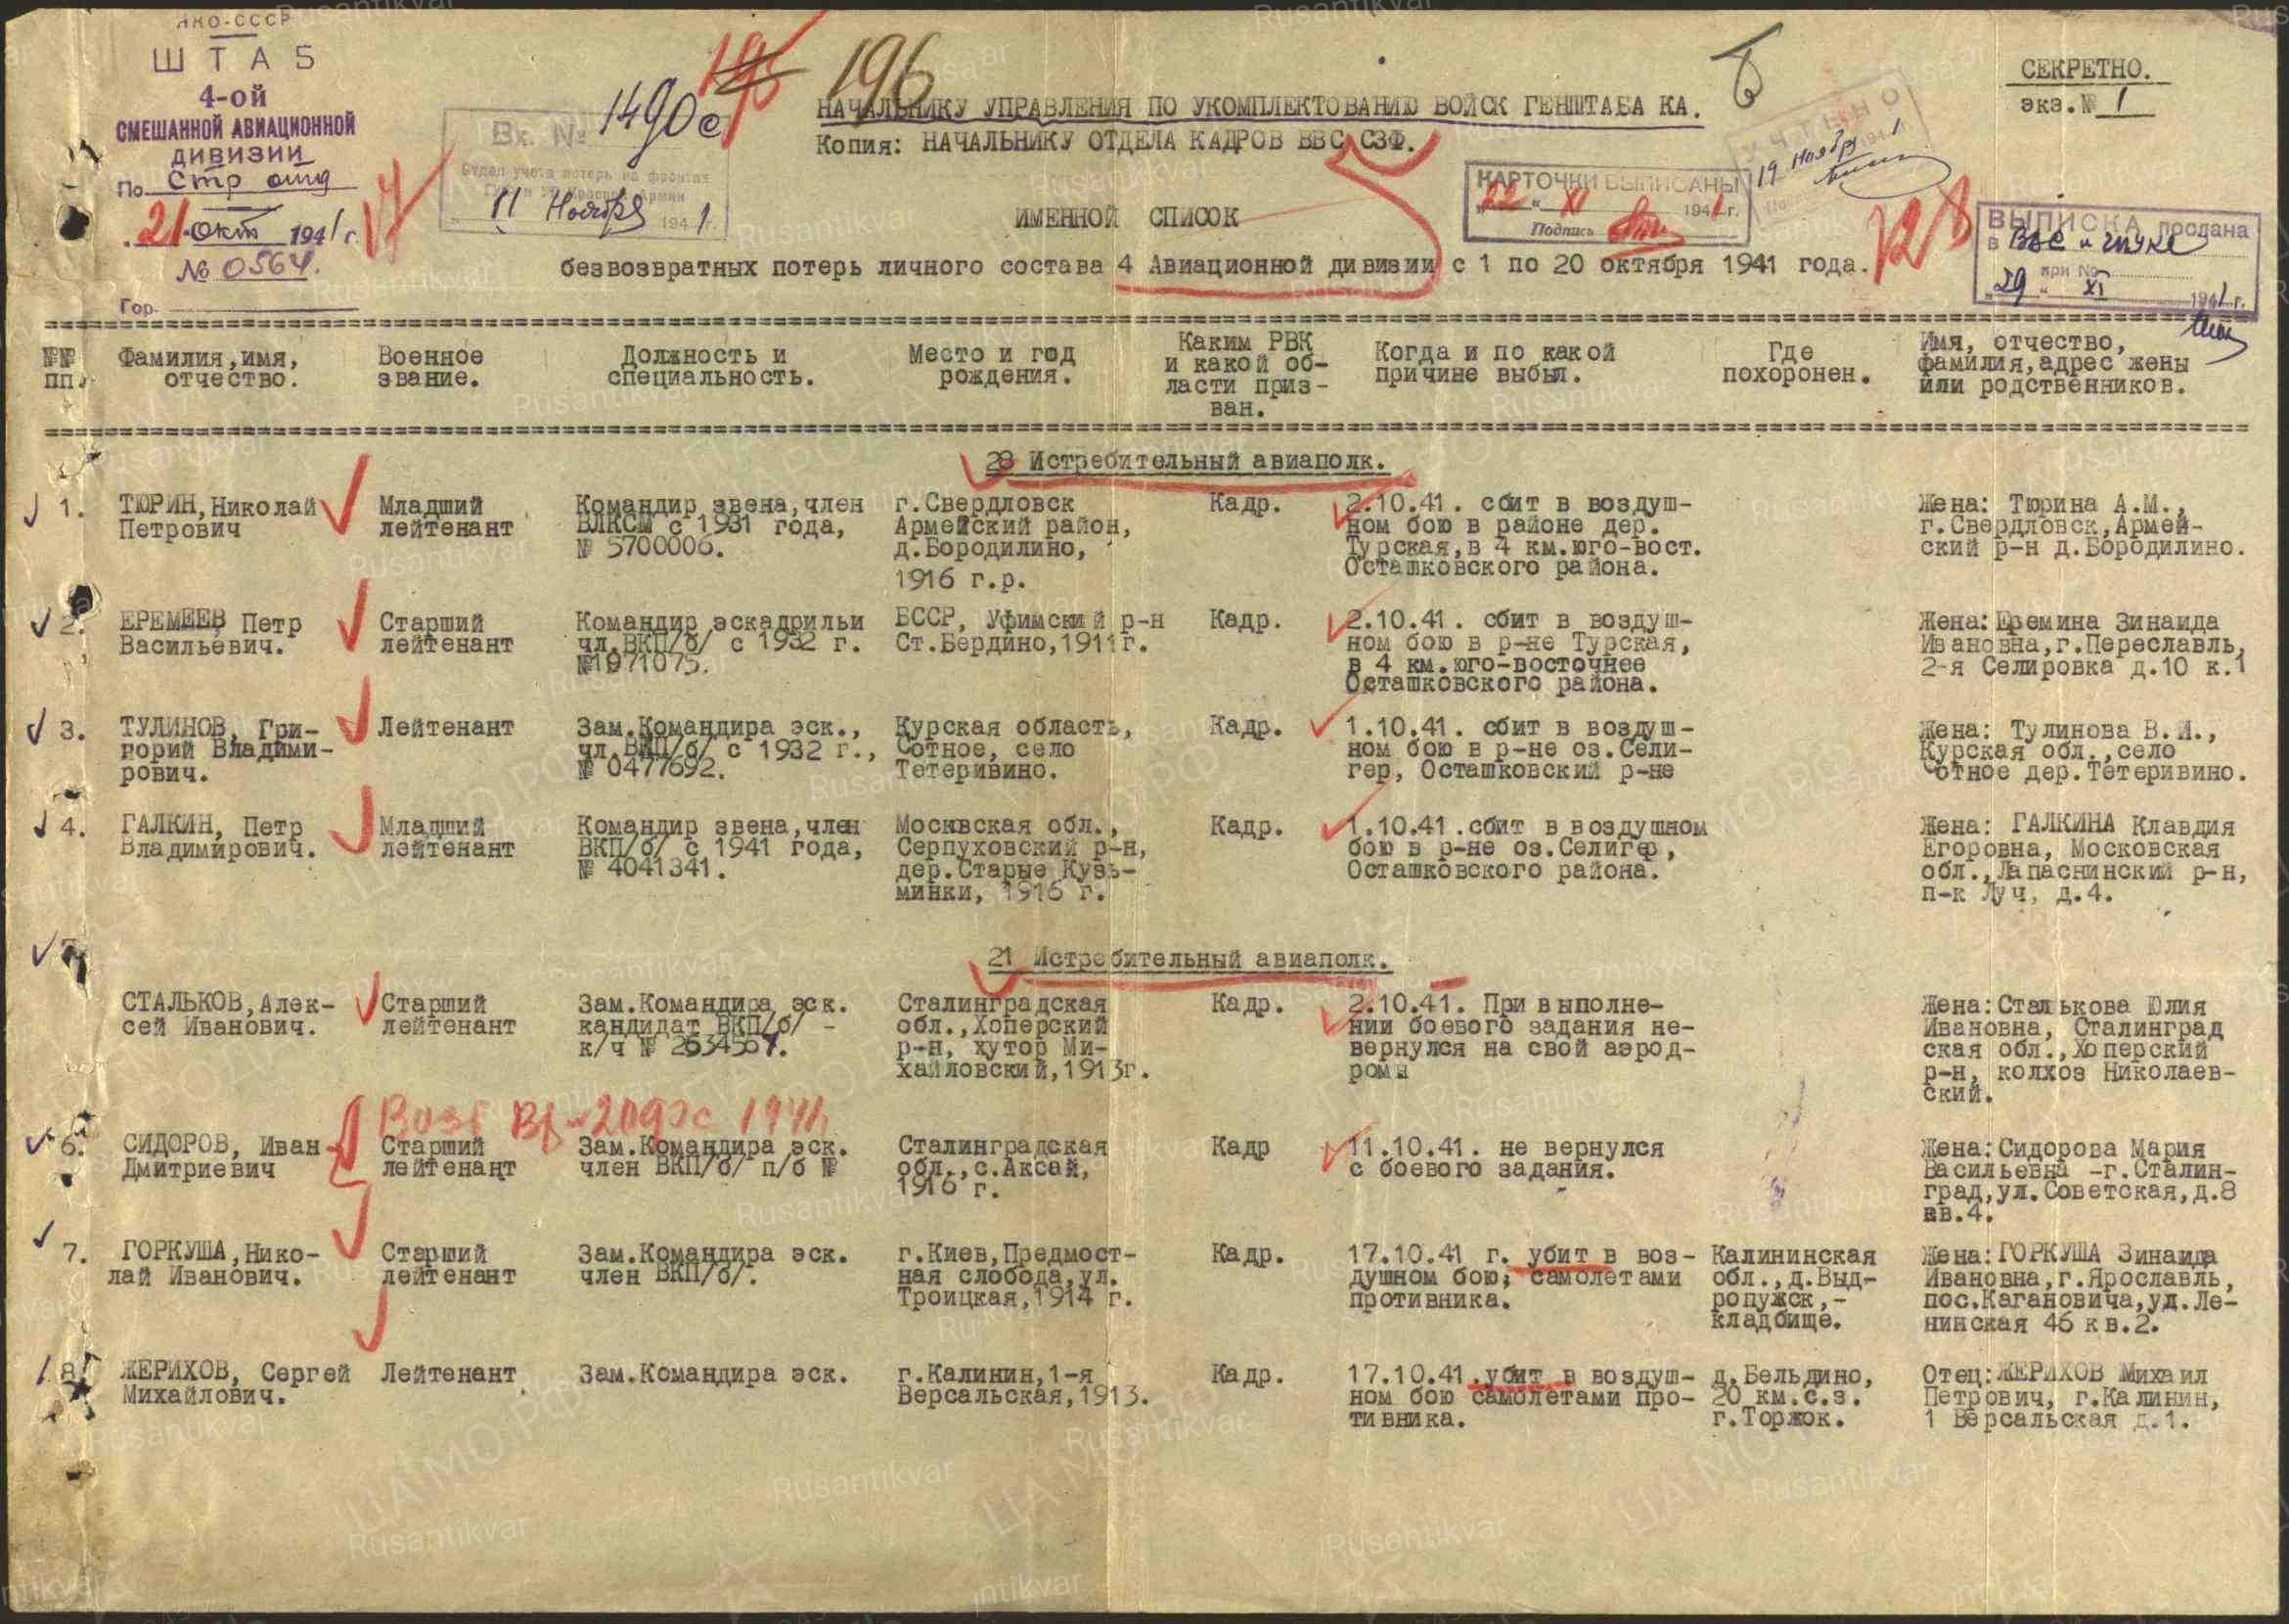 НКО-СССР
ШТАБ
4-ой
СМЕШАННОЙ АВИАЦИОННОЙ
ДИВИЗИИ
По Стр
21 окт 1941 г.
№ 0564.
Гор.
Вх. № 1490с
Отдел учета потерь на фронтах
11 Ноября 1941 г.
196
НАЧАЛЬНИКУ УПРАВЛЕНИЯ ПО УКОМПЛЕКТОВАНИЮ ВОЙСК ГЕНШТАБА КА.
Копия: НАЧАЛЬНИКУ ОТДЕЛА КАДРОВ ВВС СЗФ.
СЕКРЕТНО.
экз.№ 1
УЧТЕНО
19 Ноября 1
КАРТОЧКИ ВЫПИСАНЫ
"22" XI 1941 г.
Подпись
728
ВЫПИСКА послана
в ВВС и
при №
"29" XI 1941 г.
ИМЕННОЙ СПИСОК
безвозвратных потерь личного состава 4 Авиационной дивизии с 1 по 20 октября 1941 года.
№№ пп. Фамилия,имя, отчество. Военное звание. Должность и специальность. Место и год рождения. Каким РВК и какой об- ласти приз- ван. Когда и по какой причине выбыл. Где похоронен. Имя, отчество, фамилия,адрес жены или родственников.
28 Истребительный авиаполк.
1. ТЮРИН,Николай Младший Командир звена,член г.Свердловск Кадр. 2.10.41. сбит в воздуш- Жена: Тюрина А.М.,
Петрович лейтенант ВЛКСМ с 1931 года, Армейский район, ном бою в районе дер. г.Свердловск,Армей-
№ 5700006. д.Бородилино, Турская,в 4 км.юго-вост. ский р-н д.Бородилино.
1916 г.р. Осташковского района.
2. ЕРЕМЕЕВ Петр Старший Командир эскадрильи БССР, Уфимский р-н Кадр. 2.10.41. сбит в воздуш- Жена: Еремина Зинаида
Васильевич. лейтенант чл.ВКП/б/ с 1932 г. Ст.Бердино,1911г. ном бою в р-не Турская, Ивановна,г.Переславль,
№1971075. в 4 км.юго-восточнее 2-я Селировка д.10 к.1
Осташковского района.
3. ТУЛИНОВ, Гри- Лейтенант Зам.Командира эск., Курская область, Кадр. 1.10.41. сбит в воздуш- Жена: Тулинова В.И.,
горий Владими- чл.ВКП/б/ с 1932 г., Сотное, село ном бою в р-не оз.Сели- Курская обл.,село
рович. № 0477692. Тетеривино. гер, Осташковский р-не Сотное дер.Тетеривино.
4. ГАЛКИН, Петр Младший Командир звена,член Москвская обл., Кадр. 1.10.41.сбит в воздушном Жена: ГАЛКИНА Клавдия
Владимирович. лейтенант ВКП/б/ с 1941 года, Серпуховский р-н, бою в р-не оз.Селигер, Егоровна, Московская
№ 4041341. дер.Старые Кузь- Осташковского района. обл.,Лапаснинский р-н,
минки, 1916 г. п-к Луч, д.4.
21 Истребительный авиаполк.
СТАЛЬКОВ,Алек- Старший Зам.Командира эск. Сталинградская Кадр. 2.10.41. При выполне- Жена:Сталькова Юлия
сей Иванович. лейтенант кандидат ВКП/б/ - обл.,Хоперский нии боевого задания не- Ивановна, Сталинград
к/ч № 2634567. р-н, хутор Ми- вернулся на свой аэрод- ская обл.,Хоперский
хайловский,1913г. ром р-н, колхоз Николаев-
ский.
6. СИДОРОВ, Иван Старший Зам.Командира эск. Сталинградская Кадр 11.10.41. не вернулся Жена:Сидорова Мария
Дмитриевич лейтенант член ВКП/б/ п/б № обл.,с.Аксай, с боевого задания. Васильевна -г.Сталин-
1916 г. град,ул.Советская,д.8
кв.4.
7. ГОРКУША,Нико- Старший Зам.Командира эск. г.Киев,Предмост- Кадр. 17.10.41 г. убит в воз- Калининская Жена:ГОРКУША Зинаида
лай Иванович. лейтенант член ВКП/б/. ная слобода,ул. душном бою, самолетами обл.,д.Выд- Ивановна,г.Ярославль,
Троицкая,1914 г. противника. ропужск,- пос.Кагановича,ул.Ле-
кладбище. нинская 46 кв.2.
8. ЖЕРИХОВ, Сергей Лейтенант Зам.Командира эск. г.Калинин,1-я Кадр. 17.10.41.убит в воздуш- д.Бельдино, Отец:ЖЕРИХОВ Михаил
Михайлович. Версальская,1913. ном бою самолетами про- 20 км.с.з. Петрович, г.Калинин,
тивника. г.Торжок. 1 Версальская д.1.
Rusantikvar
ЦАМО РФ